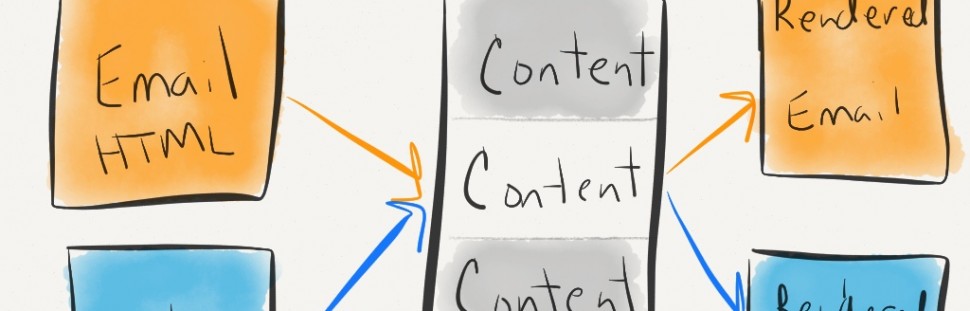 Email
HTML
Content
Content
Content
Rendered
Email
Rendered